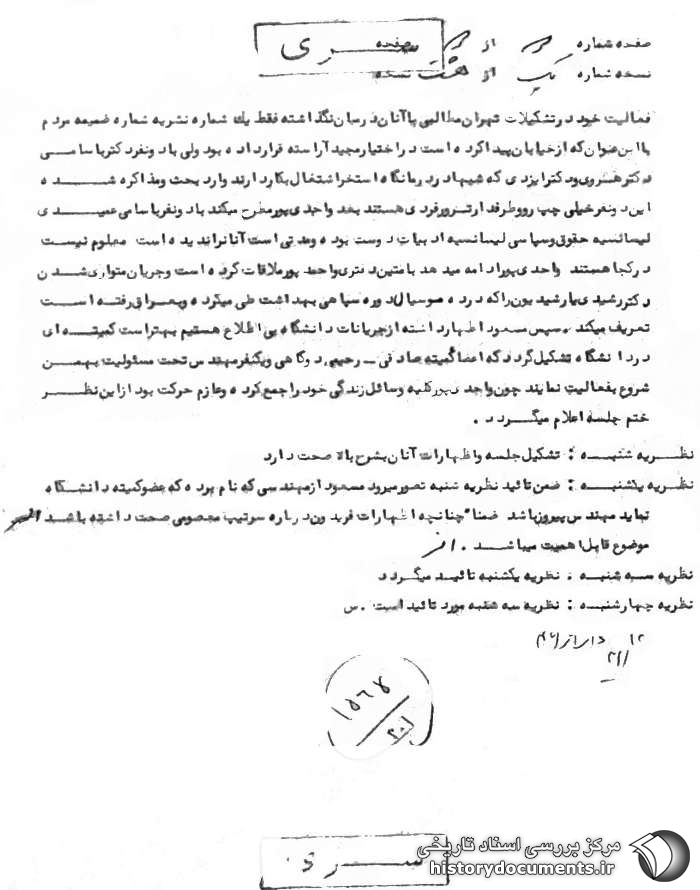 صفحه شماره از صفحه
سری
نسخه شماره یک از هشت نسخه
فعالیت خود در تشکیلات تهران مطالبی با آنان در میان نگذاشته فقط یک شماره نشریه شماره ضمیمه مردم
با این عنوان که از خیابان پیدا کرده است در اختیار مجید آراسته قرار داده بود ولی با دو نفر دکتر با سامی
دکتر هنروی و دکتر ایزدی که شبها در درمانگاه استخر اشتغال بکار دارند وارد بحث و مذاکره شده
این دو نفر خیلی چپ رو و طرفدار ترور فردی هستند بعد واحدی پور مطرح میکند با دو نفر با سامی عمیدی
لیسانسیه حقوق و سیاسی لیسانسیه ادبیات دوست بوده و مدتی است آنان را ندیده است معلوم نیست
در کجا هستند واحدی پور ادامه میدهد با متین دفتری واحد پور ملاقات کرده است و جریان متواری شدن
دکتر رشیدی یا رشیدیون را که در ده موسیان دوره سپاهی بهداشت طی میکرده و بعراق رفته است
تعریف میکند . سپس مسعود اظهار داشته از جریانات دانشگاه بی اطلاع هستیم بهتر است کمیته ای
در دانشگاه تشکیل گردد که اعضا کمیته صادقی _ رحیمی دوگاهی ویکنفر مهندس تحت مسئولیت بهمن
شروع بفعالیت نمایند چون واحدی پور کلیه وسائل زندگی خود را جمع کرده و عازم حرکت بود از این نظر
ختم جلسه اعلام میگردد .
نظریه شنبه : تشکیل جلسه و اظهارات آنان بشرح بالا صحت دارد
نظریه یکشنبه : ضمن تائید نظریه شنبه تصور میرود مسعود از مهندسی که نام برده که عضو کمیته دانشگاه
نباید مهندس پیروز باشد ضمنا" چنانچه اظهارات فریدون درباره سرتیپ معصومی صحت داشته باشد
موضوع قابل اهمیت میباشد . افسر
نظریه سه شنبه : نظریه یکشنبه تائید میگردد
نظریه چهارشنبه : نظریه سه شنبه مورد تائید است . س
۱۲
۲۱۱
۱۵۶۷
۲۰۱
سری
مرکز بررسی اسناد تاریخی
historydocuments.ir